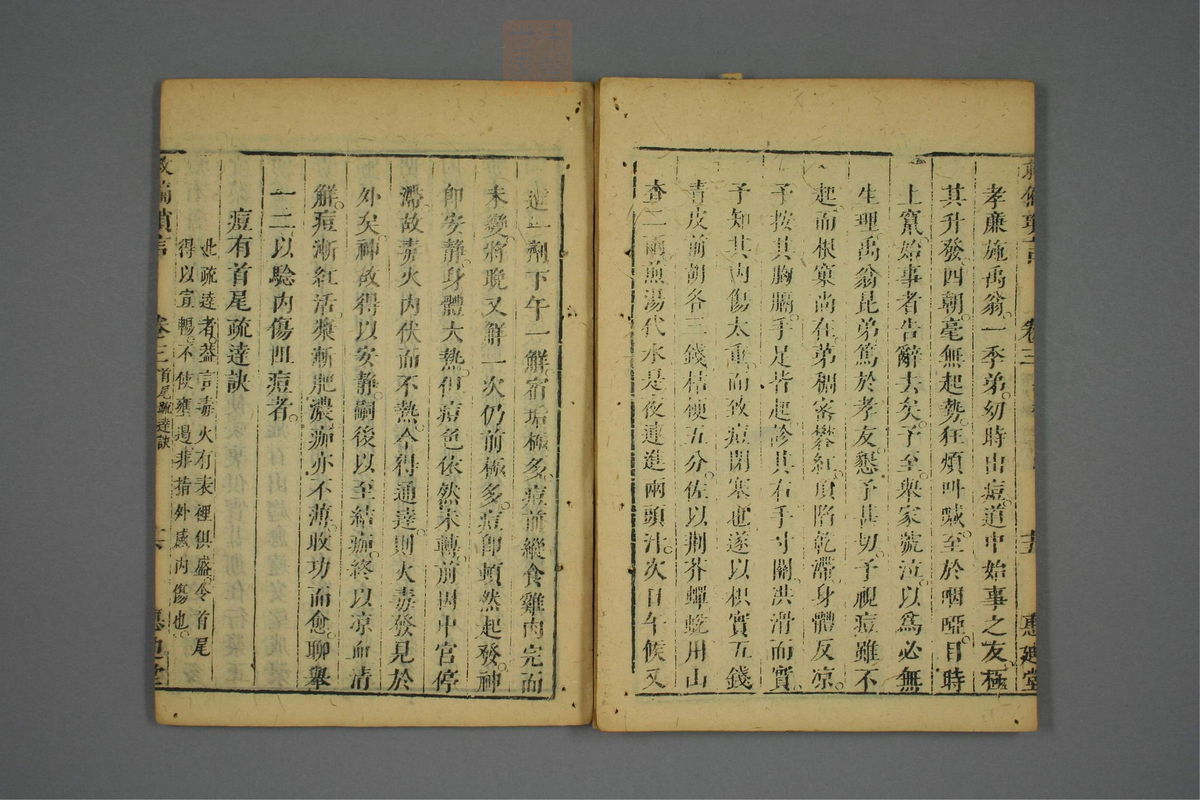 孝廉施禹翁。一季弟。幼時出痘。道中始事之友。極
其升發。四朝。毫無起勢。狂煩叫喊。至於咽啞。目時
上竄。始事者告辭去矣。予至。衆家號泣。以為必無
生理。禹翁昆弟篤於孝友。懇予甚切。予視痘雖不
起。而根窠尚在。第稠密礬紅。頂陷乾滯。身體反凉。
予按其胸膈。手足皆起。診其右手寸關。洪滑而實。
予知其內傷太重。而致痘閉塞也。遂以枳實五錢
青皮前胡各三錢。桔梗五分。佐以荆芥蟬蛻。用山
查二兩煎湯代水。是夜連進兩頭汁。次日午候又
進一劑。下午一解。宿垢極多。痘前縱食雞肉完而
未變。將晚又解一次。仍前極多。痘即頓然起發。神
即安靜。身體大熱。但痘色依然未轉。前因中宮停
滯。故毒火內伏而不熱。今得通達。則火毒發見於
外矣。神故得以安靜。嗣後以至結痂。終以凉血清
解。痘漸紅活。漿漸肥濃。痂亦不薄。收功而愈。聊舉
一二。以驗內傷阻痘者。
痘有首尾疏達訣
此疏達者。蓋言毒火有表裡俱盛。令首尾
得以宣暢。不使壅遏。非指外感內傷也。
卷三
首尾疏達訣